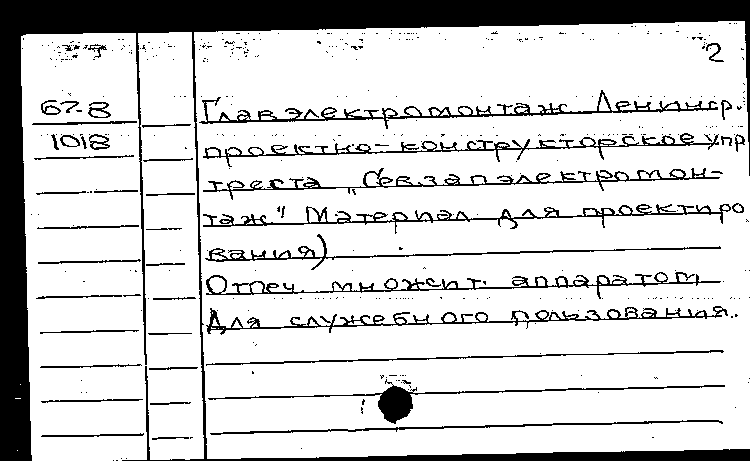 2
67-8
Главэлектромонтаж Ленингр.
1018
проектно-конструкторское упр
треста „Севзапэлектромон-
таж" Материал для проектиро
вания)
Отпеч. множит. аппаратом
Для служебного пользования.